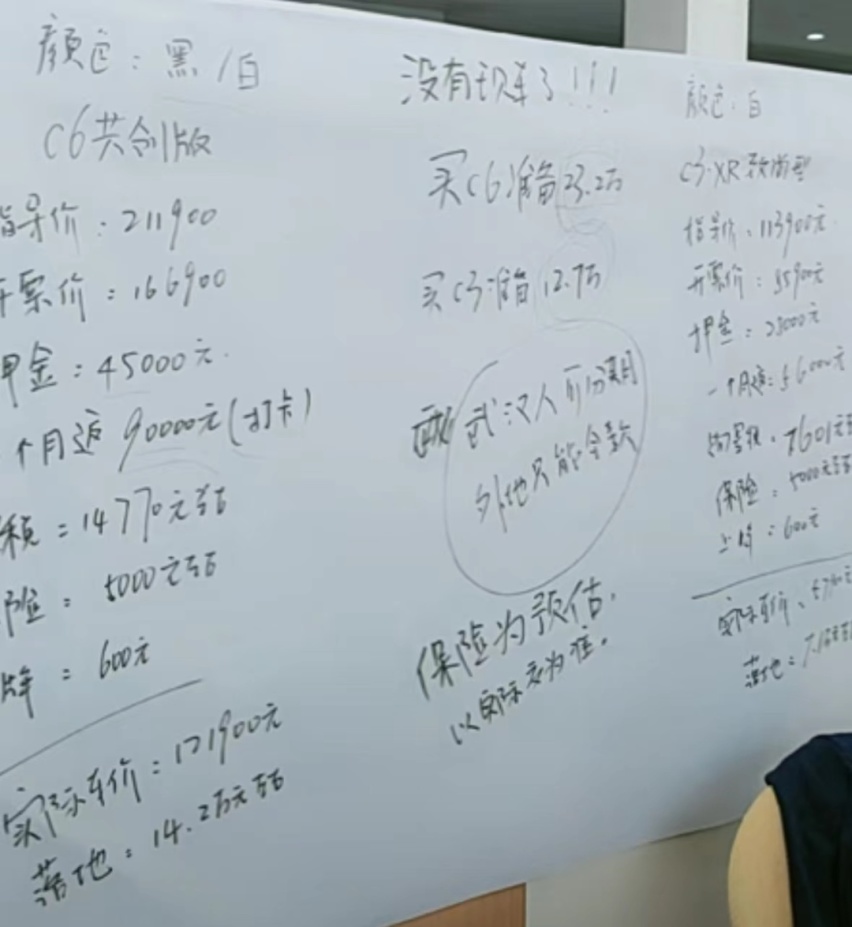 颜色：黑/白
C6共创版
指导价：211900
开票价：166900
押金：45000元.
个月返90000元(打卡)
税=14770元左右
险：5000元左右
牌：600元
实际车价：121900元
落地：14.2万元左右
没有现车了!!!
买C6准备23.2万
买C3准备12.7万
武汉人可分期
外地只能全款
保险为预估.
以实际为准.
颜色：白
C3-XR致尚型
指导价：113900元
开票价：85900元
押金：28000元
一个月返：56000元
购置税：7601元
保险：5000元左右
上牌：600元
实际车价：
落地：